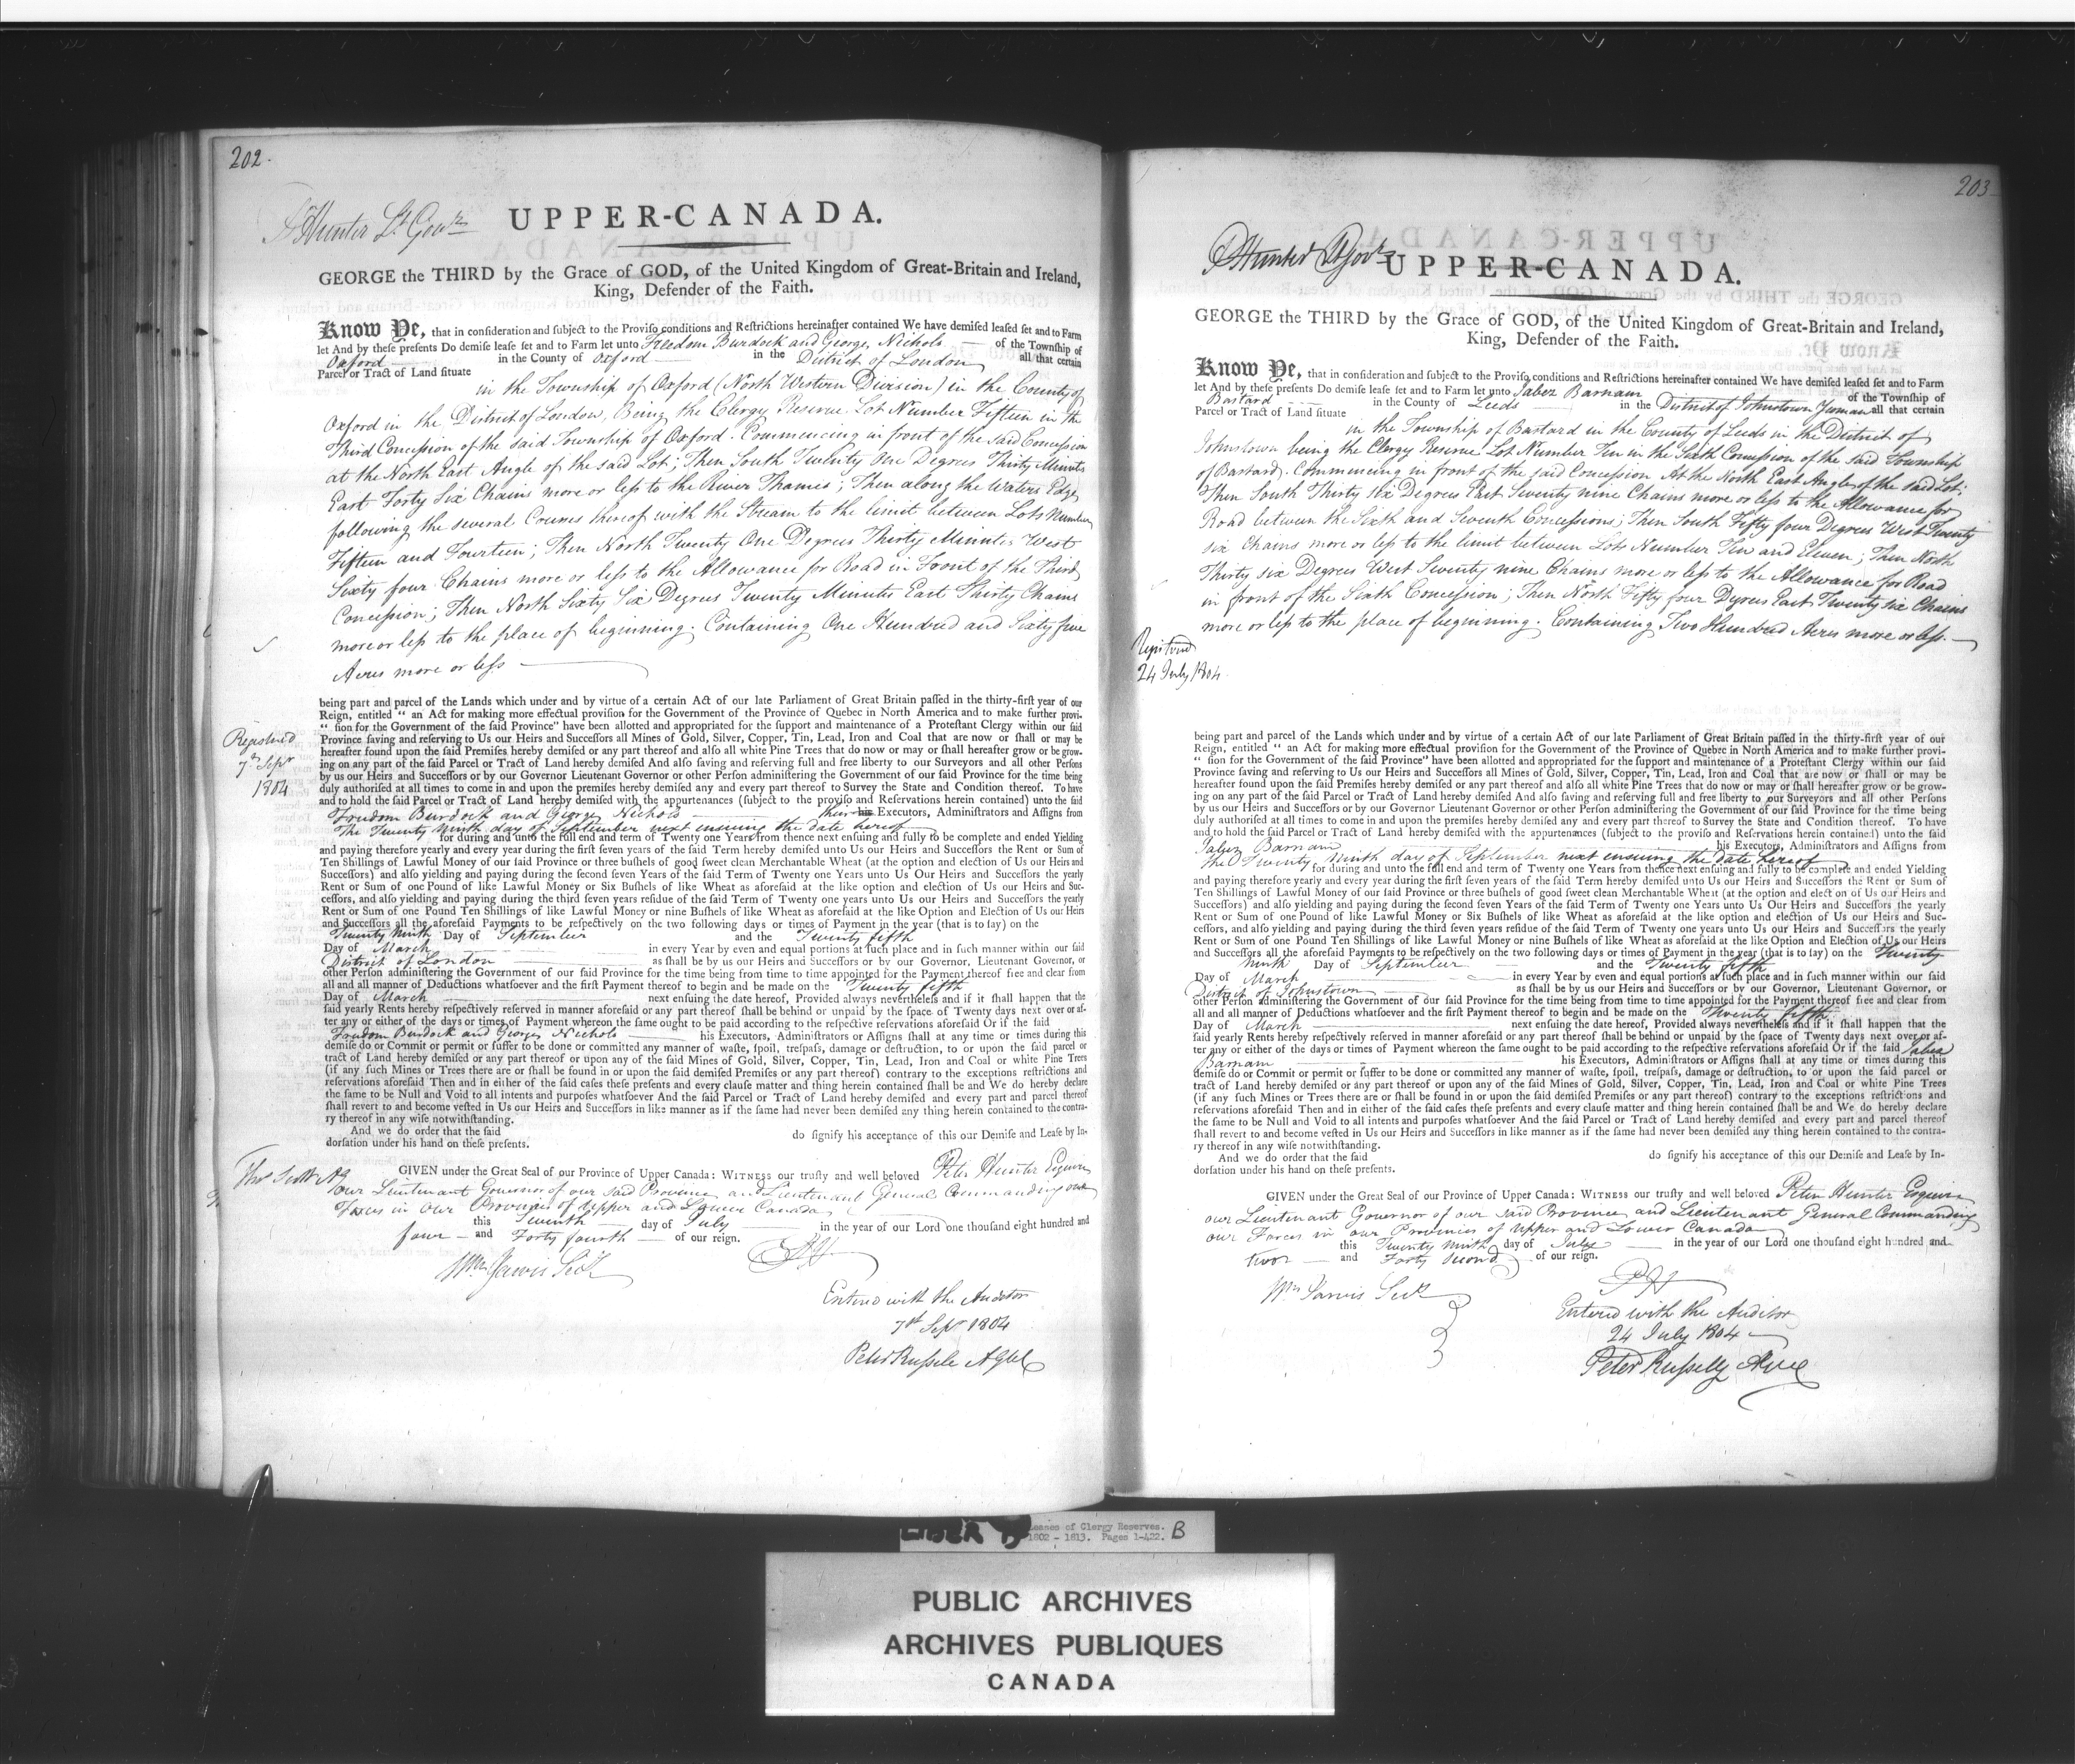 202.
P Hunter Lt. Govr.
UPPER-CANADA.
GEORGE the THIRD by the Grace of GOD, of the United Kingdom of Great-Britain and Ireland,
King, Defender of the Faith.
Know Ye, that in consideration and subject to the Proviso conditions and Restrictions hereinafter contained We have demised leased set and to Farm
let And by these presents Do demise lease set and to Farm let unto Freedom Burdock and George Nichols of the Township of
Oxford in the County of Oxford in the District of London all that certain
Parcel or Tract of Land situate
in the Township of Oxford (North Western Division) in the County of
Oxford in the District of London, Being the Clergy Reserve Lot Number Fifteen in the
Third Concession of the said Township of Oxford. Commencing in front of the said Concession
at the North East Angle of the said Lot; Then South Twenty One Degrees Thirty Minutes
East Forty Six Chains more or less to the River Thames; Then along the Waters Edge
following the several Courses thereof with the Stream to the limit between Lots Number
Fifteen and Fourteen; Then North Twenty One Degrees Thirty Minutes West
Sixty four Chains more or less to the Allowance for Road in Front of the Third
Concession; Then North Sixty Six Degrees Twenty Minutes East Thirty Chains
more or less to the place of beginning. Containing One Hundred and Sixty five
Acres more or less
being part and parcel of the Lands which under and by virtue of a certain Act of our late Parliament of Great Britain passed in the thirty-first year of our
Reign, entitled " an Act for making more effectual provision for the Government of the Province of Quebec in North America and to make further provi-
" sion for the Government of the said Province" have been allotted and appropriated for the support and maintenance of a Protestant Clergy within our said
Province saving and reserving to Us our Heirs and Successors all Mines of Gold, Silver, Copper, Tin, Lead, Iron and Coal that are now or shall or may be
hereafter found upon the said Premises hereby demised or any part thereof and also all white Pine Trees that do now or may or shall hereafter grow or be grow-
ing on any part of the said Parcel or Tract of Land hereby demised And also saving and reserving full and free liberty to our Surveyors and all other Persons
by us our Heirs and Successors or by our Governor Lieutenant Governor or other Person administering the Government of our said Province for the time being
duly authorised at all times to come in and upon the premises hereby demised any and every part thereof to Survey the State and Condition thereof. To have
and to hold the said Parcel or Tract of Land hereby demised with the appurtenances (subject to the proviso and Reservations herein contained) unto the said
Registered
7th Septr
1804
Freedom Burdock and George Nichols their his Executors, Administrators and Assigns from
The Twenty Ninth day of September next ensuing the date hereof
for during and unto the full end and term of Twenty one Years from thence next ensuing and fully to be complete and ended Yielding
and paying therefore yearly and every year during the first seven years of the said Term hereby demised unto Us our Heirs and Successors the Rent or Sum of
Ten Shillings of Lawful Money of our said Province or three bushels of good sweet clean Merchantable Wheat (at the option and election of Us our Heirs and
Successors) and also yielding and paying during the second seven Years of the said Term of Twenty one Years unto Us Our Heirs and Successors the yearly
Rent or Sum of one Pound of like Lawful Money or Six Bushels of like Wheat as aforesaid at the like option and election of Us our Heirs and Suc-
cessors, and also yielding and paying during the third seven years residue of the said Term of Twenty one years unto Us our Heirs and Successors the yearly
Rent or Sum of one Pound Ten Shillings of like Lawful Money or nine Bushels of like Wheat as aforesaid at the like Option and Election of Us our Heirs
and Successors all the aforesaid Payments to be respectively on the two following days or times of Payment in the year (that is to say) on the
Twenty Ninth Day of September and the Twenty fifth
Day of March in every Year by even and equal portions at such place and in such manner within our said
District of London as shall be by us our Heirs and Successors or by our Governor, Lieutenant Governor, or
other Person administering the Government of our said Province for the time being from time to time appointed for the Payment thereof free and clear from
all and all manner of Deductions whatsoever and the first Payment thereof to begin and be made on the Twenty fifth
Day of March next ensuing the date hereof, Provided always nevertheless and if it shall happen that the
said yearly Rents hereby respectively reserved in manner aforesaid or any part thereof shall be behind or unpaid by the space of Twenty days next over or af-
ter any or either of the days or times of Payment whereon the same ought to be paid according to the respective reservations aforesaid Or if the said
Freedom Burdock and George Nichols his Executors, Administrators or Assigns shall at any time or times during this
demise do or Commit or permit or suffer to be done or committed any manner of waste, spoil, trespass, damage or destruction, to or upon the said parcel or
tract of Land hereby demised or any part thereof or upon any of the said Mines of Gold, Silver, Copper, Tin, Lead, Iron and Coal or white Pine Trees
(if any such Mines or Trees there are or shall be found in or upon the said demised Premises or any part thereof) contrary to the exceptions restrictions and
reservations aforesaid Then and in either of the said cases these presents and every clause matter and thing herein contained shall be and We do hereby declare
the same to be Null and Void to all intents and purposes whatsoever And the said Parcel or Tract of Land hereby demised and every part and parcel thereof
shall revert to and become vested in Us our Heirs and Successors in like manner as if the same had never been demised any thing herein contained to the contra-
ry thereof in any wise notwithstanding.
And we do order that the said do signify his acceptance of this our Demise and Lease by In-
dorsation under his hand on these presents.
Thos Scott Ag
GIVEN under the Great Seal of our Province of Upper Canada: WITNESS our trusty and well beloved Peter Hunter Esquire
our Lieutenant Governor of our said Province and Lieutenant General Commanding our
Forces in our Provinces of Upper and Lower Canada
this Seventh day of July in the year of our Lord one thousand eight hundred and
four and Forty fourth of our reign.
PH
Wm Jarvis Secy
Entered with the Auditor
7th Sept 1804
Peter Russell AGl
203
P Hunter Lt Govr.
UPPER-CANADA.
GEORGE the THIRD by the Grace of GOD, of the United Kingdom of Great-Britain and Ireland,
King, Defender of the Faith.
Know Ye, that in consideration and subject to the Proviso conditions and Restrictions hereinafter contained We have demised leased set and to Farm
let And by these presents Do demise lease set and to Farm let unto Jabez Barnam of the Township of
Bastard in the County of Leeds in the District of Johnstown Yeoman all that certain
Parcel or Tract of Land situate
in the Township of Bastard in the County of Leeds in the District of
Johnstown being the Clergy Reserve Lot Number Ten in the Sixth Concession of the said Township
of Bastard. Commencing in front of the said Concession At the North East Angle of the said Lot;
Then South Thirty six Degrees East Seventy nine Chains more or less to the Allowance for
Road between the Sixth and Seventh Concessions; Then South Fifty four Degrees West Twenty
six Chains more or less to the limit between Lots Number Ten and Eleven; Then North
Thirty six Degrees West Seventy nine Chains more or less to the Allowance for Road
in front of the Sixth Concession; Then North Fifty four Degrees East Twenty six Chains
more or less to the place of beginning. Containing Two Hundred Acres more or less.
Registered
24 July 1804
being part and parcel of the Lands which under and by virtue of a certain Act of our late Parliament of Great Britain passed in the thirty-first year of our
Reign, entitled " an Act for making more effectual provision for the Government of the Province of Quebec in North America and to make further provi-
" sion for the Government of the said Province" have been allotted and appropriated for the support and maintenance of a Protestant Clergy within our said
Province saving and reserving to Us our Heirs and Successors all Mines of Gold, Silver, Copper, Tin, Lead, Iron and Coal that are now or shall or may be
hereafter found upon the said Premises hereby demised or any part thereof and also all white Pine Trees that do now or may or shall hereafter grow or be grow-
ing on any part of the said Parcel or Tract of Land hereby demised And also saving and reserving full and free liberty to our Surveyors and all other Persons
by us our Heirs and Successors or by our Governor Lieutenant Governor or other Person administering the Government of our said Province for the time being
duly authorised at all times to come in and upon the premises hereby demised any and every part thereof to Survey the State and Condition thereof. To have
and to hold the said Parcel or Tract of Land hereby demised with the appurtenances (subject to the proviso and Reservations herein contained) unto the said
Jabez Barnam his Executors, Administrators and Assigns from
the Twenty Ninth day of September next ensuing the date hereof
for during and unto the full end and term of Twenty one Years from thence next ensuing and fully to be complete and ended Yielding
and paying therefore yearly and every year during the first seven years of the said Term hereby demised unto Us our Heirs and Successors the Rent or Sum of
Ten Shillings of Lawful Money of our said Province or three bushels of good sweet clean Merchantable Wheat (at the option and election of Us our Heirs and
Successors) and also yielding and paying during the second seven Years of the said Term of Twenty one Years unto Us Our Heirs and Successors the yearly
Rent or Sum of one Pound of like Lawful Money or Six Bushels of like Wheat as aforesaid at the like option and election of Us our Heirs and Suc-
cessors, and also yielding and paying during the third seven years residue of the said Term of Twenty one years unto Us our Heirs and Successors the yearly
Rent or Sum of one Pound Ten Shillings of like Lawful Money or nine Bushels of like Wheat as aforesaid at the like Option and Election of Us our Heirs
and Successors all the aforesaid Payments to be respectively on the two following days or times of Payment in the year (that is to say) on the Twenty
Ninth Day of September and the Twenty fifth
Day of March in every Year by even and equal portions at such place and in such manner within our said
District of Johnstown as shall be by us our Heirs and Successors or by our Governor, Lieutenant Governor, or
other Person administering the Government of our said Province for the time being from time to time appointed for the Payment thereof free and clear from
all and all manner of Deductions whatsoever and the first Payment thereof to begin and be made on the Twenty fifth
Day of March next ensuing the date hereof, Provided always nevertheless and if it shall happen that the
said yearly Rents hereby respectively reserved in manner aforesaid or any part thereof shall be behind or unpaid by the space of Twenty days next over or af-
ter any or either of the days or times of Payment whereon the same ought to be paid according to the respective reservations aforesaid Or if the said Jabez
Barnam his Executors, Administrators or Assigns shall at any time or times during this
demise do or Commit or permit or suffer to be done or committed any manner of waste, spoil, trespass, damage or destruction, to or upon the said parcel or
tract of Land hereby demised or any part thereof or upon any of the said Mines of Gold, Silver, Copper, Tin, Lead, Iron and Coal or white Pine Trees
(if any such Mines or Trees there are or shall be found in or upon the said demised Premises or any part thereof) contrary to the exceptions restrictions and
reservations aforesaid Then and in either of the said cases these presents and every clause matter and thing herein contained shall be and We do hereby declare
the same to be Null and Void to all intents and purposes whatsoever And the said Parcel or Tract of Land hereby demised and every part and parcel thereof
shall revert to and become vested in Us our Heirs and Successors in like manner as if the same had never been demised any thing herein contained to the contra-
ry thereof in any wise notwithstanding.
And we do order that the said do signify his acceptance of this our Demise and Lease by In-
dorsation under his hand on these presents.
GIVEN under the Great Seal of our Province of Upper Canada: WITNESS our trusty and well beloved Peter Hunter Esquire
our Lieutenant Governor of our said Province and Lieutenant General Commanding
our Forces in our Provinces of Upper and Lower Canada
this Twenty Ninth day of July in the year of our Lord one thousand eight hundred and
two and Forty second of our reign.
PH
Wm Jarvis Secy
Entered with the Auditor
24 July 1804
Peter Russell
LIBER B Leases of Clergy Reserves.
1802 - 1813. Pages 1-422. B
PUBLIC ARCHIVES
ARCHIVES PUBLIQUES
CANADA